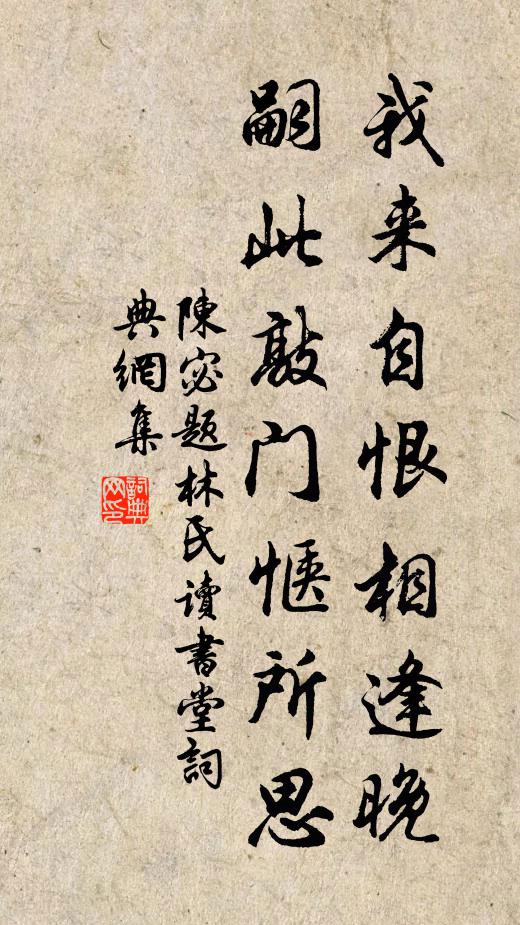 我来自恨相逢晚
嗣此敲门惬所思
陳宓题林氏讀書堂詞
典網集
詞典
网印